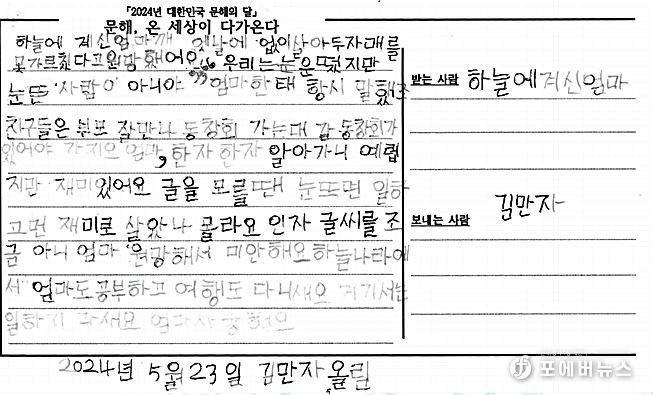 『2024년 대한민국 문해의 달』
문해, 온 세상이 다가온다
하늘에 계신엄마께 옛날에 없이살아두자매를
못가르쳤다고원망했어요 우리는눈은떴지만
눈뜬 사람이 아니야 엄마한태 항시 말했죠
친구들은 쉬프 잘만나 동창회 가는대 감동창회가
있어야 가지요 엄마, 한자 한자 알아가니 예렵
지만 재미있어요 글을 모를때 눈뜨면 일하
고먼 재미로 살았나 몰라요 인자 글씨를 조
금 아니 엄마 원망해서 미안해요하늘나라에
서 엄마도공부하고 여행도 다니새요 거기서는
일하지 마새요 엄마사랑해요
받는 사람 하늘에계신엄마
보내는 사람 김만자
2024년 5월23일 김만자,올림
포에버뉴스